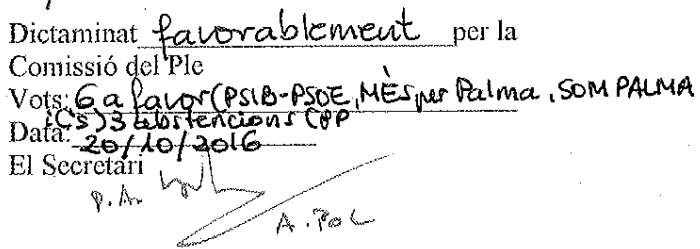 Dictaminat favorablement per la
Comissió del Ple
Vots: 6 a favor (PSIB-PSOE, MÉS per Palma, SOM PALMA
i Cs) 3 abstencions (PP
Data: 20/10/2016
El Secretari
p.A.
A. Pol